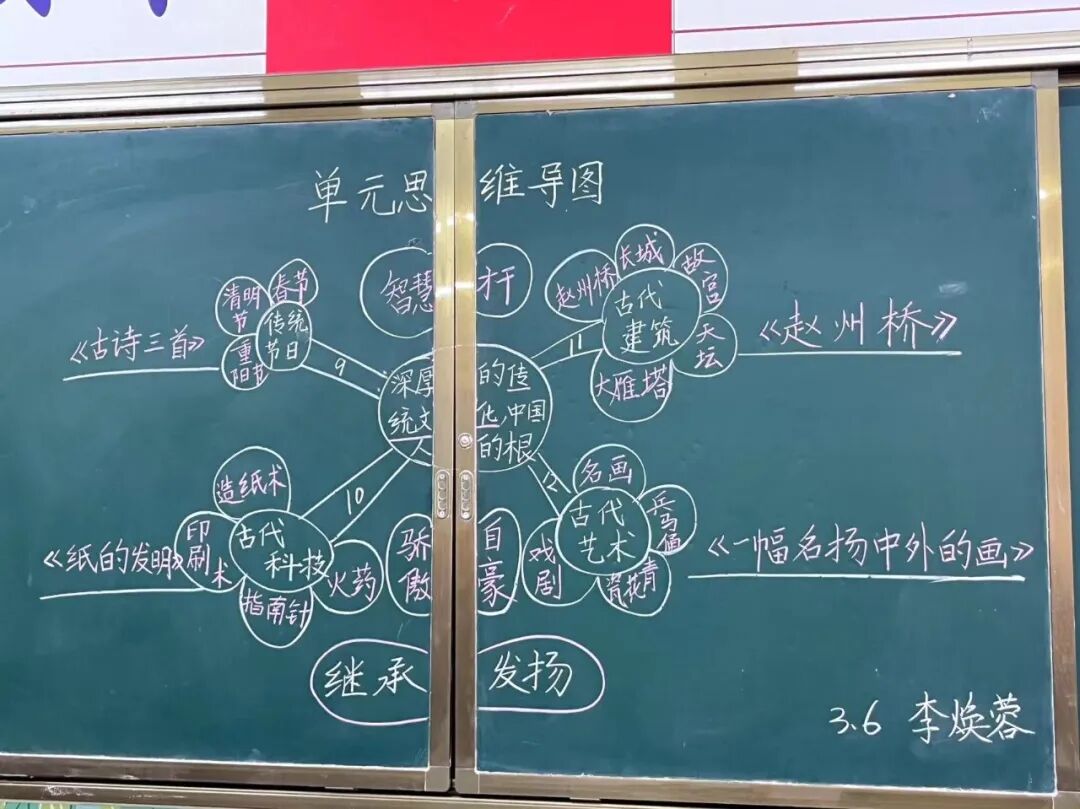 单元思维导图
智慧 才干
清明节
春节
重阳节
传统节日
《古诗三首》
9
赵州桥
长城
故宫
天坛
大雁塔
古代建筑
11
《赵州桥》
深厚的传
统文化,中国
的根
造纸术
印刷术
指南针
火药
古代科技
10
《纸的发明》
骄傲
自豪
名画
兵马俑
青花
戏剧
古代艺术
12
《一幅名扬中外的画》
继承 发扬
3.6 李焕蓉